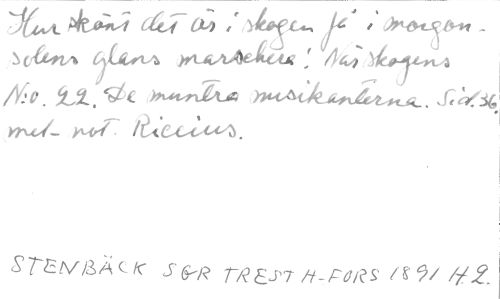 Hur skönt det är i skogen få i morgon-
solens glans marschera! När skogens
N:o. 22. De muntra musikanterna. Sid. 36.
mel- not. Riccius.
STENBÄCK SGR TREST H-FORS 1891 H.2.